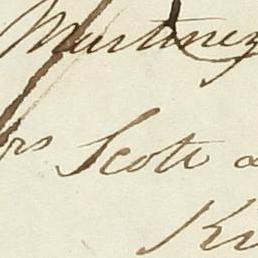 Martinez
rs Scott &
Ki